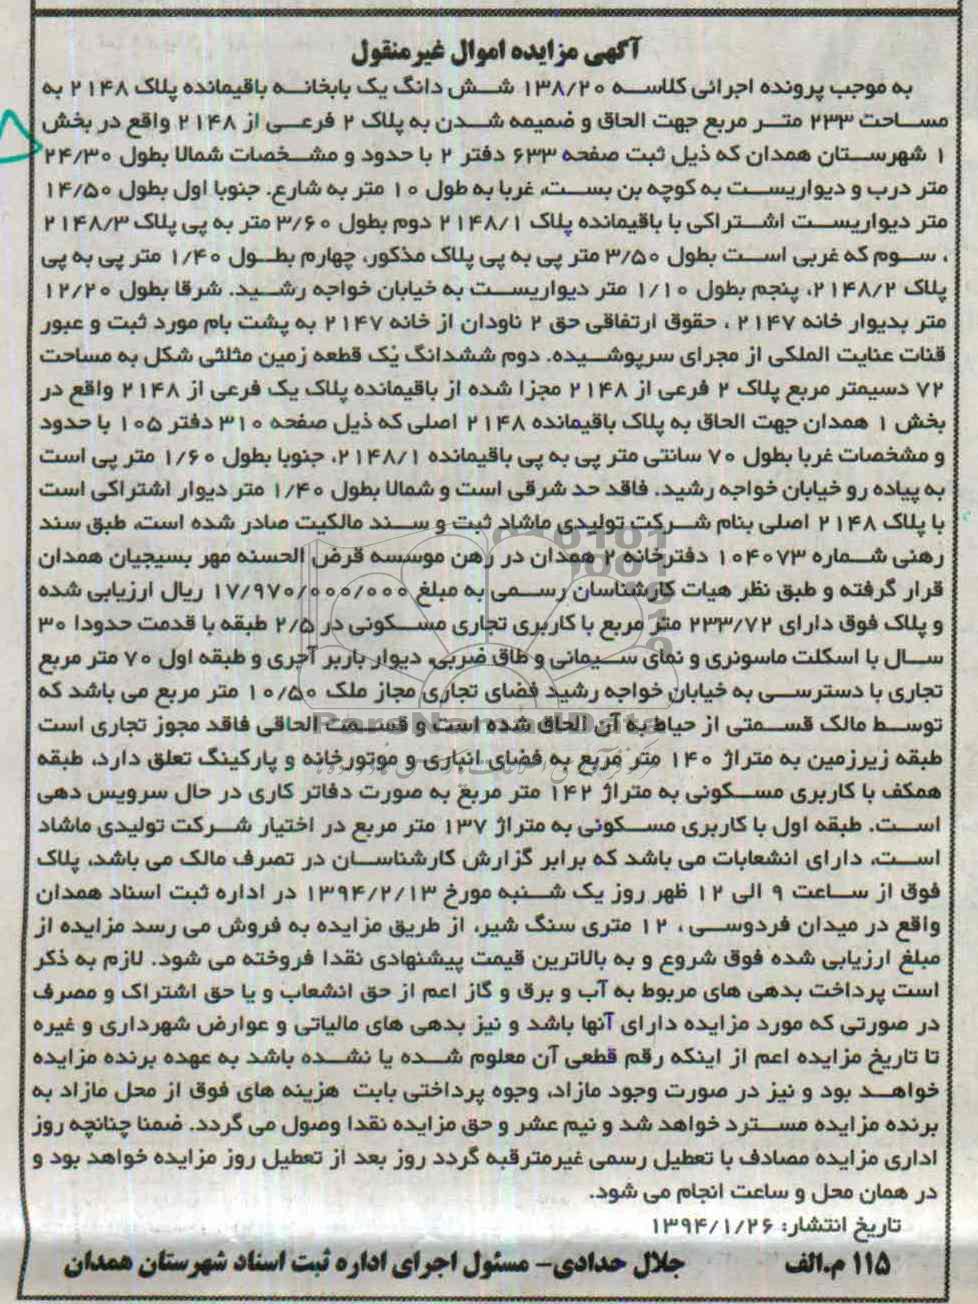 آگهی مزایده اموال غیرمنقول
به موجب پرونده اجرائی کلاسه ۱۳۸/۲۰ شش دانگ یک بابخانه باقیمانده پلاک ۲۱۴۸ به
مساحت ۲۳۳ متر مربع جهت الحاق و ضمیمه شدن به پلاک ۲ فرعی از ۲۱۴۸ واقع در بخش
۱ شهرستان همدان که ذیل ثبت صفحه ۶۳۳ دفتر ۲ با حدود و مشخصات شمالا بطول ۲۴/۳۰
متر درب و دیواریست به کوچه بن بست، غربا به طول ۱۰ متر به شارع. جنوبا اول بطول ۱۴/۵۰
متر دیواریست اشتراکی با باقیمانده پلاک ۲۱۴۸/۱ دوم بطول ۳/۶۰ متر به پی پلاک ۲۱۴۸/۳
، سوم که غربی است بطول ۳/۵۰ متر پی به پی پلاک مذکور، چهارم بطول ۱/۴۰ متر پی به پی
پلاک ۲۱۴۸/۲، پنجم بطول ۱/۱۰ متر دیواریست به خیابان خواجه رشید. شرقا بطول ۱۲/۲۰
متر بدیوار خانه ۲۱۴۷ ، حقوق ارتفاقی حق ۲ ناودان از خانه ۲۱۴۷ به پشت بام مورد ثبت و عبور
قنات عنایت الملکی از مجرای سرپوشیده. دوم ششدانگ یک قطعه زمین مثلثی شکل به مساحت
۷۲ دسیمتر مربع پلاک ۲ فرعی از ۲۱۴۸ مجزا شده از باقیمانده پلاک یک فرعی از ۲۱۴۸ واقع در
بخش ۱ همدان جهت الحاق به پلاک باقیمانده ۲۱۴۸ اصلی که ذیل صفحه ۳۱۰ دفتر ۱۰۵ با حدود
و مشخصات غربا بطول ۷۰ سانتی متر پی به پی باقیمانده ۲۱۴۸/۱، جنوبا بطول ۱/۶۰ متر پی است
به پیاده رو خیابان خواجه رشید. فاقد حد شرقی است و شمالا بطول ۱/۴۰ متر دیوار اشتراکی است
با پلاک ۲۱۴۸ اصلی بنام شرکت تولیدی ماشاد ثبت و سند مالکیت صادر شده است، طبق سند
رهنی شماره ۱۰۴۰۷۳ دفترخانه ۲ همدان در رهن موسسه قرض الحسنه مهر بسیجیان همدان
قرار گرفته و طبق نظر هیات کارشناسان رسمی به مبلغ ۱۷/۹۷۰/۰۰۰/۰۰۰ ریال ارزیابی شده
و پلاک فوق دارای ۲۳۳/۷۲ متر مربع با کاربری تجاری مسکونی در ۲/۵ طبقه با قدمت حدودا ۳۰
سال با اسکلت ماسونری و نمای سیمانی و طاق ضربی، دیوار باربر آجری و طبقه اول ۷۰ متر مربع
تجاری با دسترسی به خیابان خواجه رشید فضای تجاری مجاز ملک ۱۰/۵۰ متر مربع می باشد که
توسط مالک قسمتی از حیاط به آن الحاق شده است و قسمت الحاقی فاقد مجوز تجاری است
طبقه زیرزمین به متراژ ۱۴۰ متر مربع به فضای انباری و موتورخانه و پارکینگ تعلق دارد، طبقه
همکف با کاربری مسکونی به متراژ ۱۴۲ متر مربع به صورت دفاتر کاری در حال سرویس دهی
است. طبقه اول با کاربری مسکونی به متراژ ۱۳۷ متر مربع در اختیار شرکت تولیدی ماشاد
است، دارای انشعابات می باشد که برابر گزارش کارشناسان در تصرف مالک می باشد، پلاک
فوق از ساعت ۹ الی ۱۲ ظهر روز یک شنبه مورخ ۱۳۹۴/۲/۱۳ در اداره ثبت اسناد همدان
واقع در میدان فردوسی ، ۱۲ متری سنگ شیر، از طریق مزایده به فروش می رسد مزایده از
مبلغ ارزیابی شده فوق شروع و به بالاترین قیمت پیشنهادی نقدا فروخته می شود. لازم به ذکر
است پرداخت بدهی های مربوط به آب و برق و گاز اعم از حق انشعاب و یا حق اشتراک و مصرف
در صورتی که مورد مزایده دارای آنها باشد و نیز بدهی های مالیاتی و عوارض شهرداری و غیره
تا تاریخ مزایده اعم از اینکه رقم قطعی آن معلوم شده یا نشده باشد به عهده برنده مزایده
خواهد بود و نیز در صورت وجود مازاد، وجوه پرداختی بابت هزینه های فوق از محل مازاد به
برنده مزایده مسترد خواهد شد و نیم عشر و حق مزایده نقدا وصول می گردد. ضمنا چنانچه روز
اداری مزایده مصادف با تعطیل رسمی غیرمترقبه گردد روز بعد از تعطیل روز مزایده خواهد بود و
در همان محل و ساعت انجام می شود.
تاریخ انتشار: ۱۳۹۴/۱/۲۶
۱۱۵ م.الف جلال حدادی- مسئول اجرای اداره ثبت اسناد شهرستان همدان